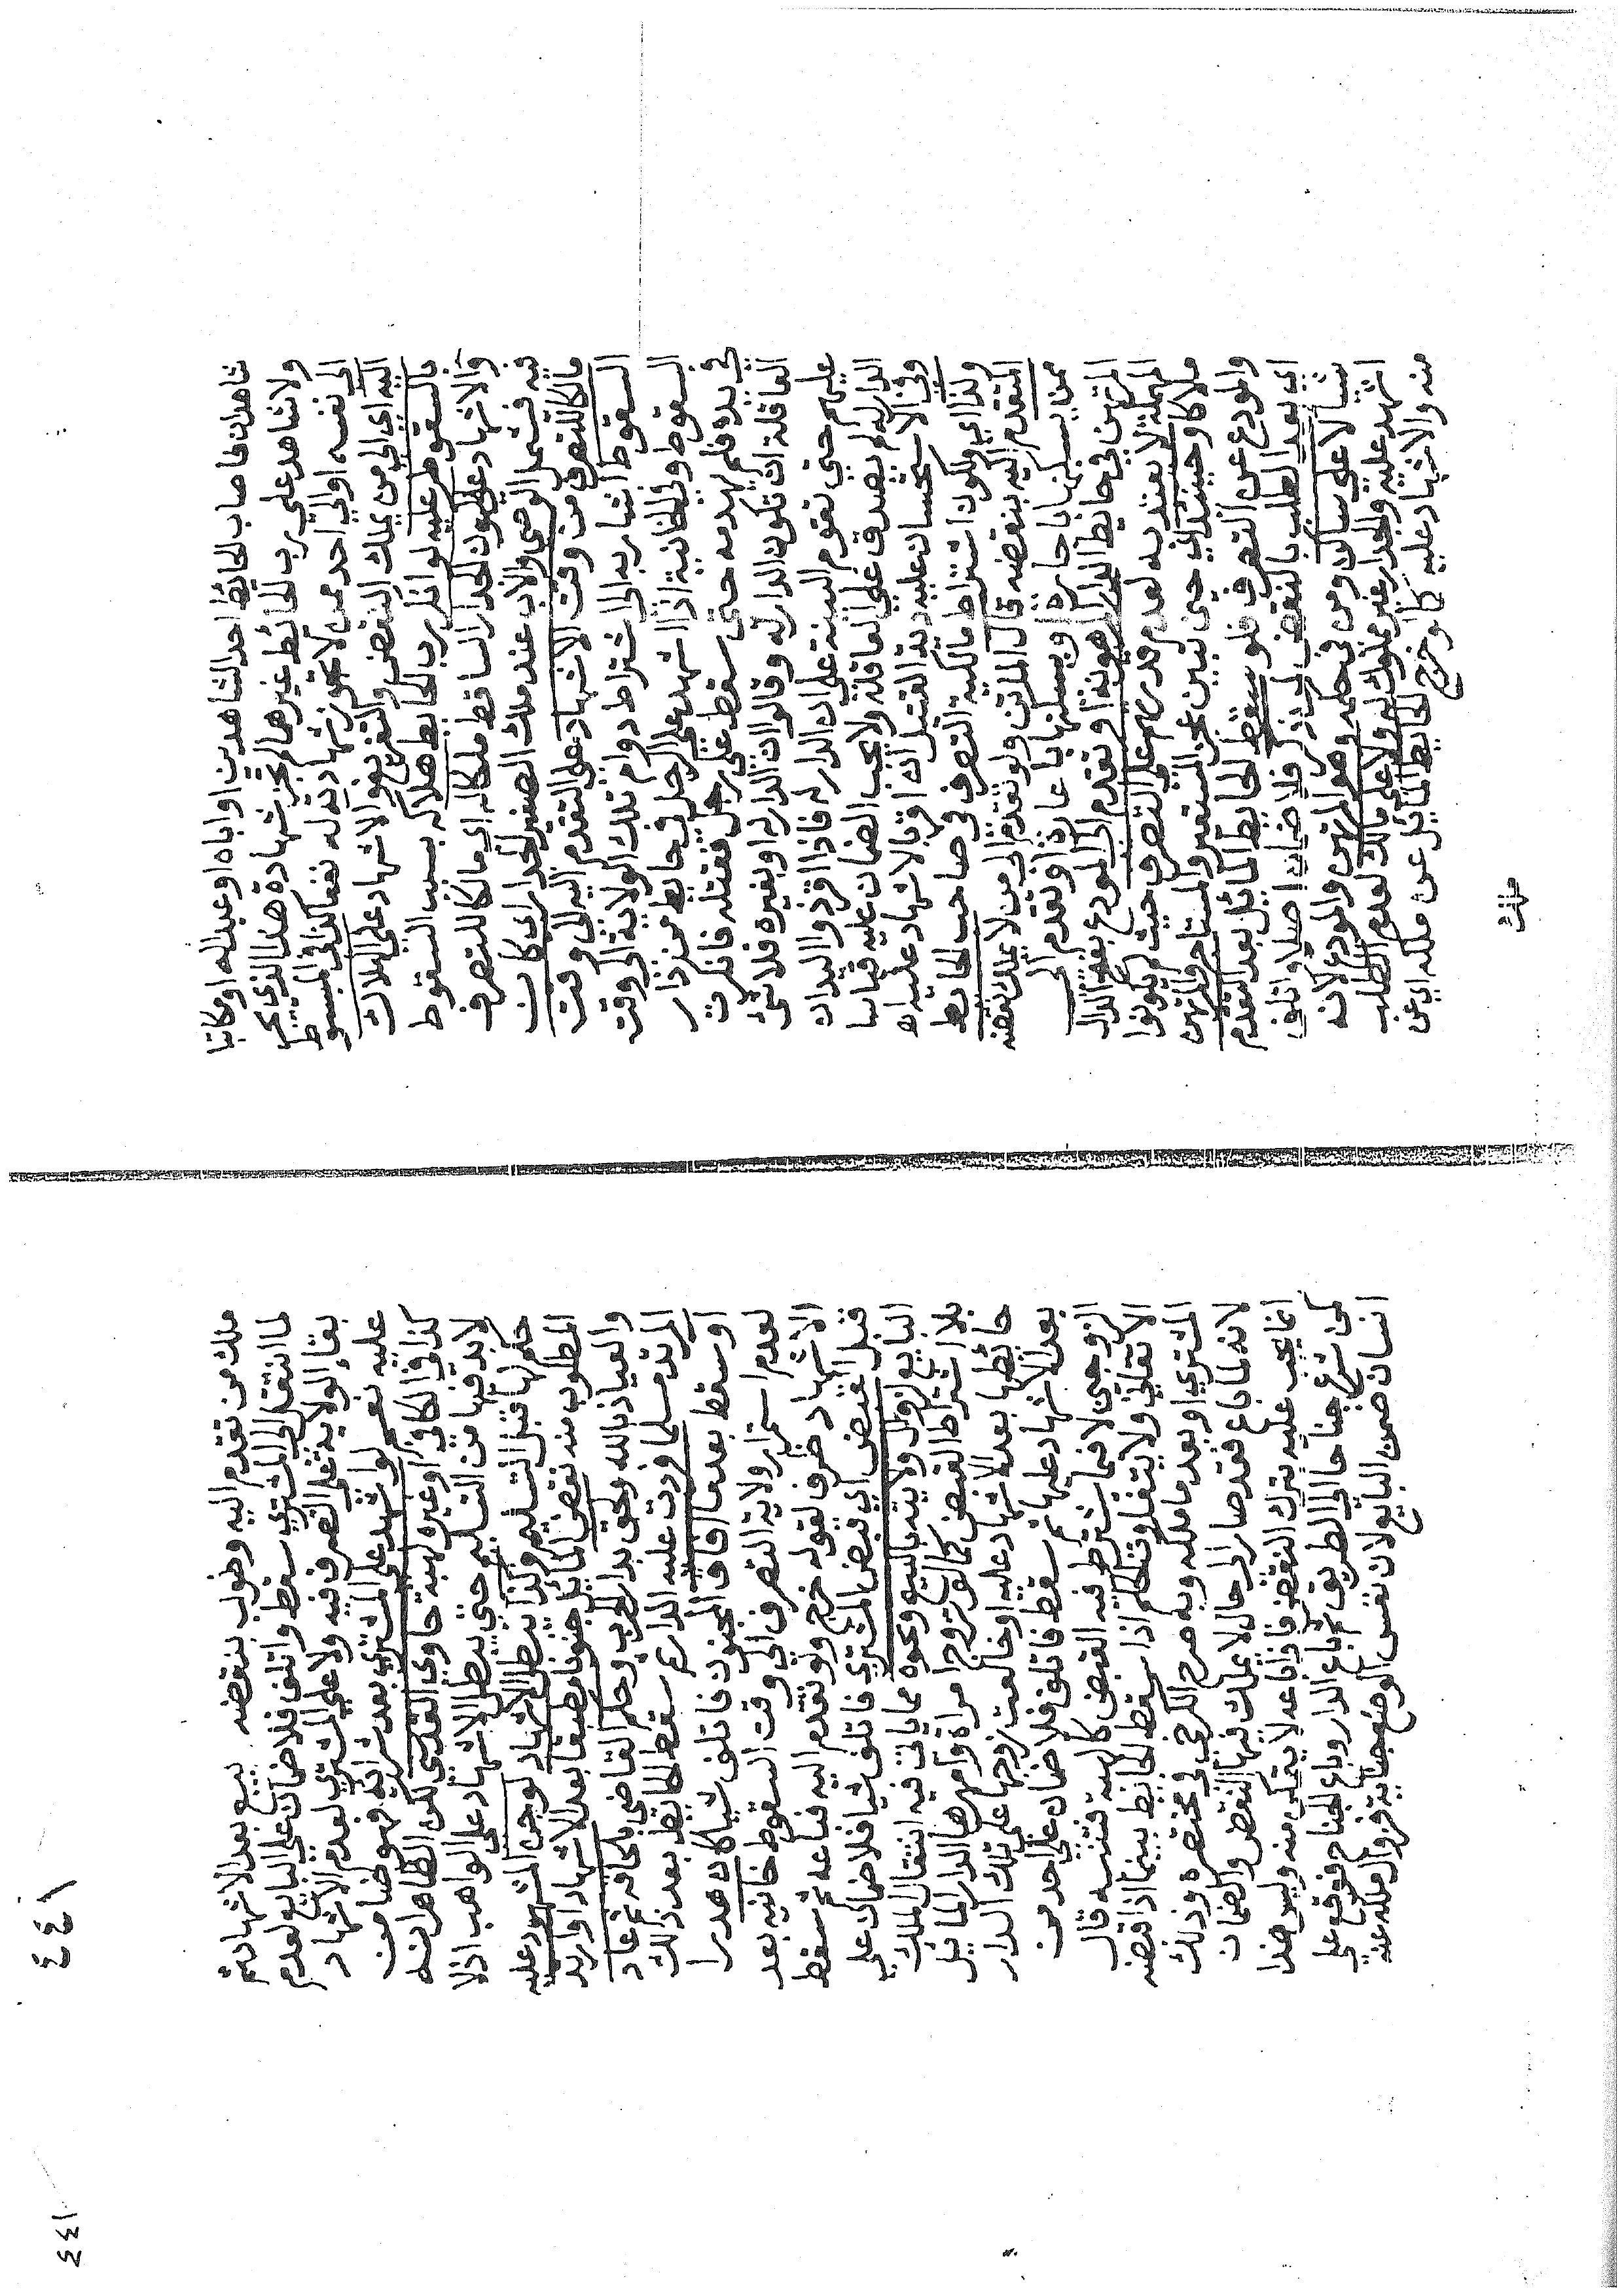 شاهدان فاصاب الحائط احد الشاهدين او اباه او عبدا له او مكاتبا
ولا شاهد علي رب الحائط غيرهما لم تجز شهادة هذا الذي يجر
الي نفسه او الي احد ممن لا تجوز شهادته له نفعا كذا في المبسوط
اليه اي الي من يملك النقض والتفريغ والاشهاد علي الهلاك
بالسقوط عليه لو انكر رب الحايط هلاكه بسبب السقوط
والاشهاد علي كون الجدار الساقط ملكا له اي مالكا للتصرف
فيه فشمل الوصي والاب عند ملك الصغير الجدار اي كان
مالكا للتصرف من وقت الاشهاد علي التقدم اليه الي وقت
السقوط اشار به الي اشتراط دوام تلك الولاية الي وقت
السقوط وفي الخانية اذا اشهد علي الرجل في حايط من دار
في يده فلم يهدمه حتى سقط علي رجل فقتله فانكرت
العاقلة ان تكون الدار له وقالوا ان الدار له او بغيره فلا شئ
عليهم حتى تقوم البينة علي ان الدار له فاذا اقر ذو اليد ان
الدار له لم يصدق علي العاقلة ولا يجب الضمان عليه قياسا
وفي الاستحسان عليه دية القتيل ان اقر بالاشهاد عليه اه
ولذا اي ولكون اشتراط مالكية التصرف في صاحب الحايط
المتقدم اليه بنقضه قال الماتن ولو تقدم الي من لا يملك نقضه
ممن يسكنها باجارة او يسكنها باعارة او تقدم الي
المرتهن في حايط الدار المرهونة او تقدم الي المودع بفتح الدال
المهملة لا يعتد به لعدم قدرتهم علي التصرف حيث لم يكونوا
ملاكا وحينئذ اي حين تبين عجز المستعير والمستاجر والمرتهن
والمودع عن التصرف فلو سقط الحايط المائل بعد التقدم
اي بعد الطلب بالنقض لمن ذكر فلا ضمان اصلا واتلف
شيا لا علي ساكن ومن في حكمه وهو المرتهن والمودع لانه
اشهد عليه والجدار غير مملوك له ولا علي مالك لعدم الطلب
منه والاشهاد عليه كما لو خرج الحايط المائل عن ملكه اي عن
ملك
ملك من تقدم اليه وطولب بنقضه ببيع بعد الاشهاد ثم
لما انتقل الي المشتري سقط واتلف فلا ضمان علي البايع لعدم
بقاء الولاية علي التصرف فيه ولا علي المشتري لعدم الاشهاد
عليه نعم لو اشهد علي المشتري بعد شرائه فهو ضامن
كذا في الكافي او غيره كهبة حاوي القدسي لكن الظاهر انه
لابد فيها من التسليم حتى يبطل الاشهاد علي الواهب اذ لا
حكم لها قبل التسليم وكذا يبطل الاشهاد لو جن المشهود عليه
المطلوب منه نقض المائل جنونا مطبقا بعد الاشهاد او ارتد
والعياذ بالله ولحق بدار الحرب وحكم القاضي بلحاقه ثم عاد
المرتد مسلما وردت عليه الدار ثم سقط الحائط بعد ذلك
او سقط بعدما افاق المجنون فاتلف شيا كان هدرا
لعدم استمرار ولاية التصرف الي وقت السقوط خانيه بعد
الاشهاد ظرف لقوله خرج ولو تقدم اليه فباعه ثم سقط
قبل القبض اي قبض المشتري فاتلف شيا فلا ضمان علي
البايع لزوال ولايته بالبيع ونحوه مما ياتى فيه انتقال الملك
بلا اشتراط القبض كما لو تزوج امراة وامهرها الدار المائل
حائطها بعد الاشهاد عليه او خالعت زوجها علي تلك الدار
بعد الاشهاد عليها ثم سقط فاتلف فلا ضمان علي احد من
الزوجين لا فيما يشترط فيه القبض كالهبة فتنبه قال
الاتقاني ولا يتفاوت الحكم اذا سقط الحايط بينما اذا قبضه
المشتري او بعد ما ملكه وبه صرح الكرخي في مختصره وذلك
لانه لما باع فقد صار الي حال لا يملك فيها النقض والضمان
انما يجب عليه بترك النقض فاذا باعه لا يتمكن منه وليس هذا
كمن شرع جناحا الي الطريق ثم باع الدار وباع الجناح فوقع علي
انسان ضمن البايع لان نفس الوضع جناية فزوال ملكه عنه
٤٤١
٤٤١